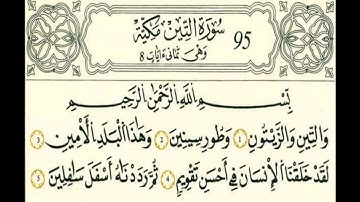 95 سُورَةُ التِّينِ مَكِّيَّة
وَهِيَ ثَمَانِي ءَايَات 8
بِسْمِ اللَّهِ الرَّحْمَٰنِ الرَّحِيمِ
وَالتِّينِ وَالزَّيْتُونِ ١ وَطُورِ سِينِينَ ٢ وَهَٰذَا الْبَلَدِ الْأَمِينِ ٣
لَقَدْ خَلَقْنَا الْإِنسَانَ فِي أَحْسَنِ تَقْوِيمٍ ٤ ثُمَّ رَدَدْنَاهُ أَسْفَلَ سَافِلِينَ ٥